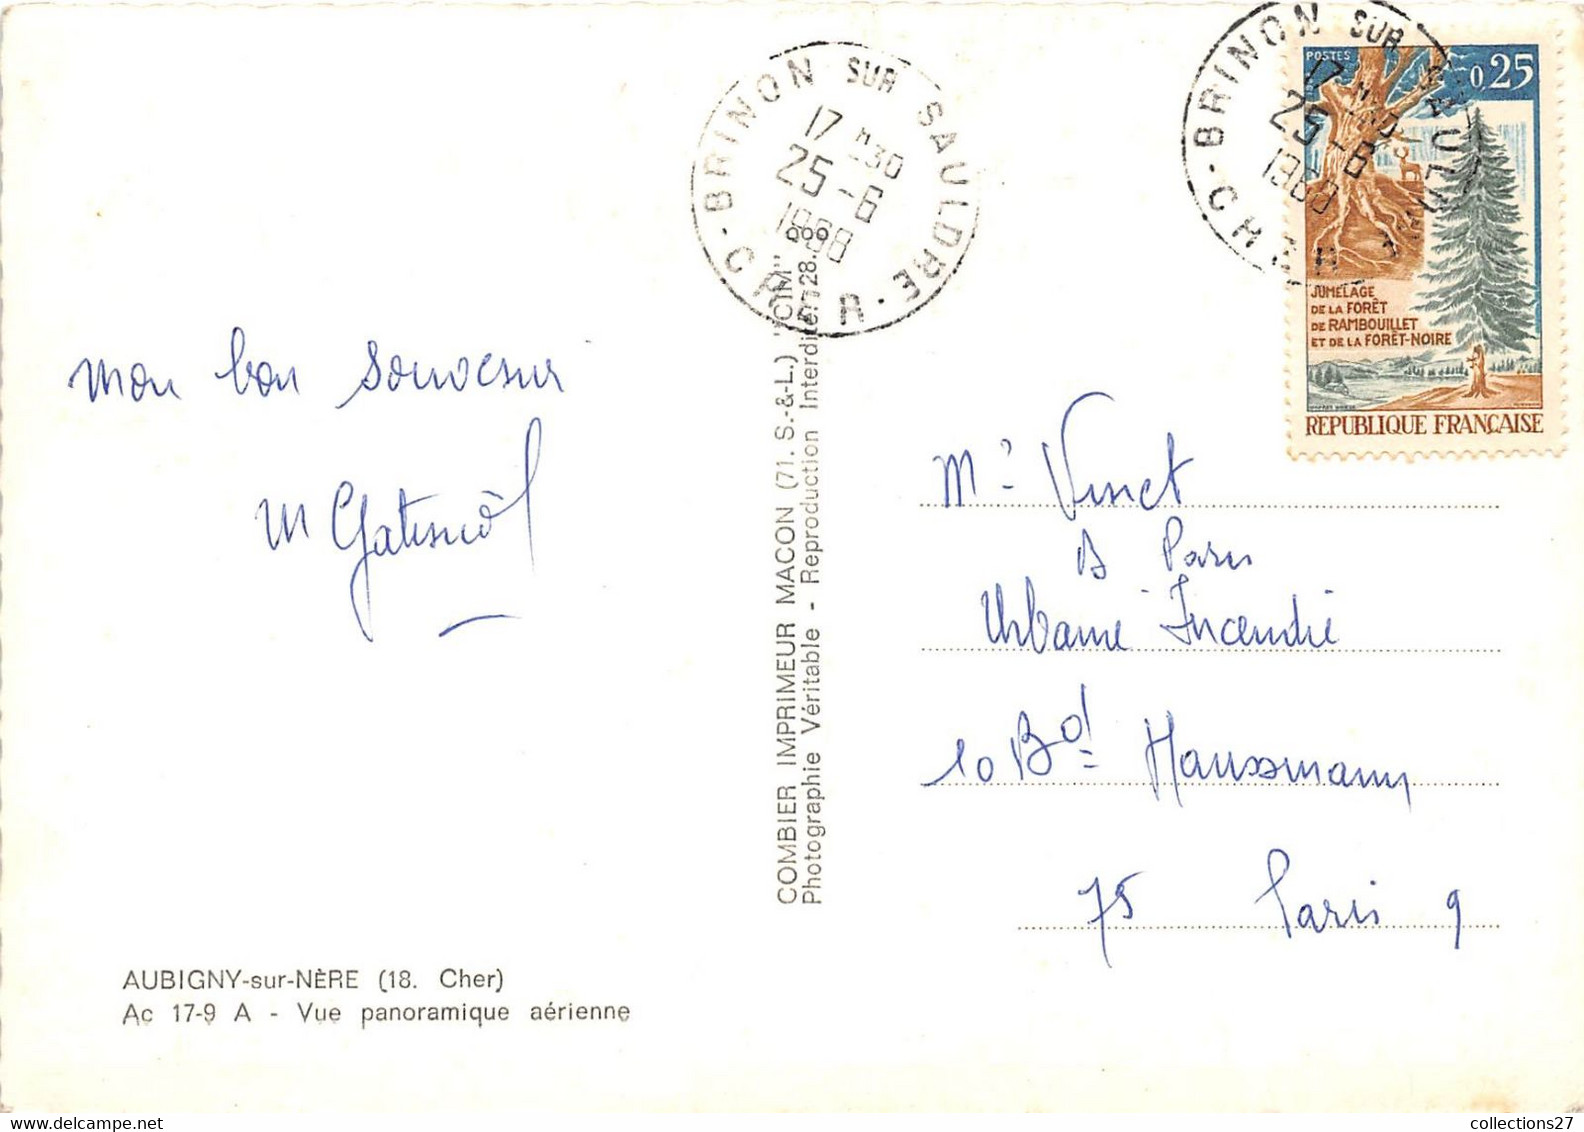 BRINON SUR SAULDRE
17 H 30
25-6
1968
- CHER -
BRINON SUR SAULDRE
17 H 30
25-6
1968
- CHER -
POSTES
0,25
JUMELAGE
DE LA FORÊT
DE RAMBOUILLET
ET DE LA FORÊT-NOIRE
REPUBLIQUE FRANÇAISE
Mon bon souvenir
M
COMBIER IMPRIMEUR MACON (71. S.-&-L.) "CIM"
Photographie Véritable - Reproduction Interdite. 28.
Mr Vinet
B Paris
Urbaine Incendie
10 Bd Haussmann
75 Paris 9
AUBIGNY-sur-NÈRE (18. Cher)
Ac 17-9 A - Vue panoramique aérienne
collections27